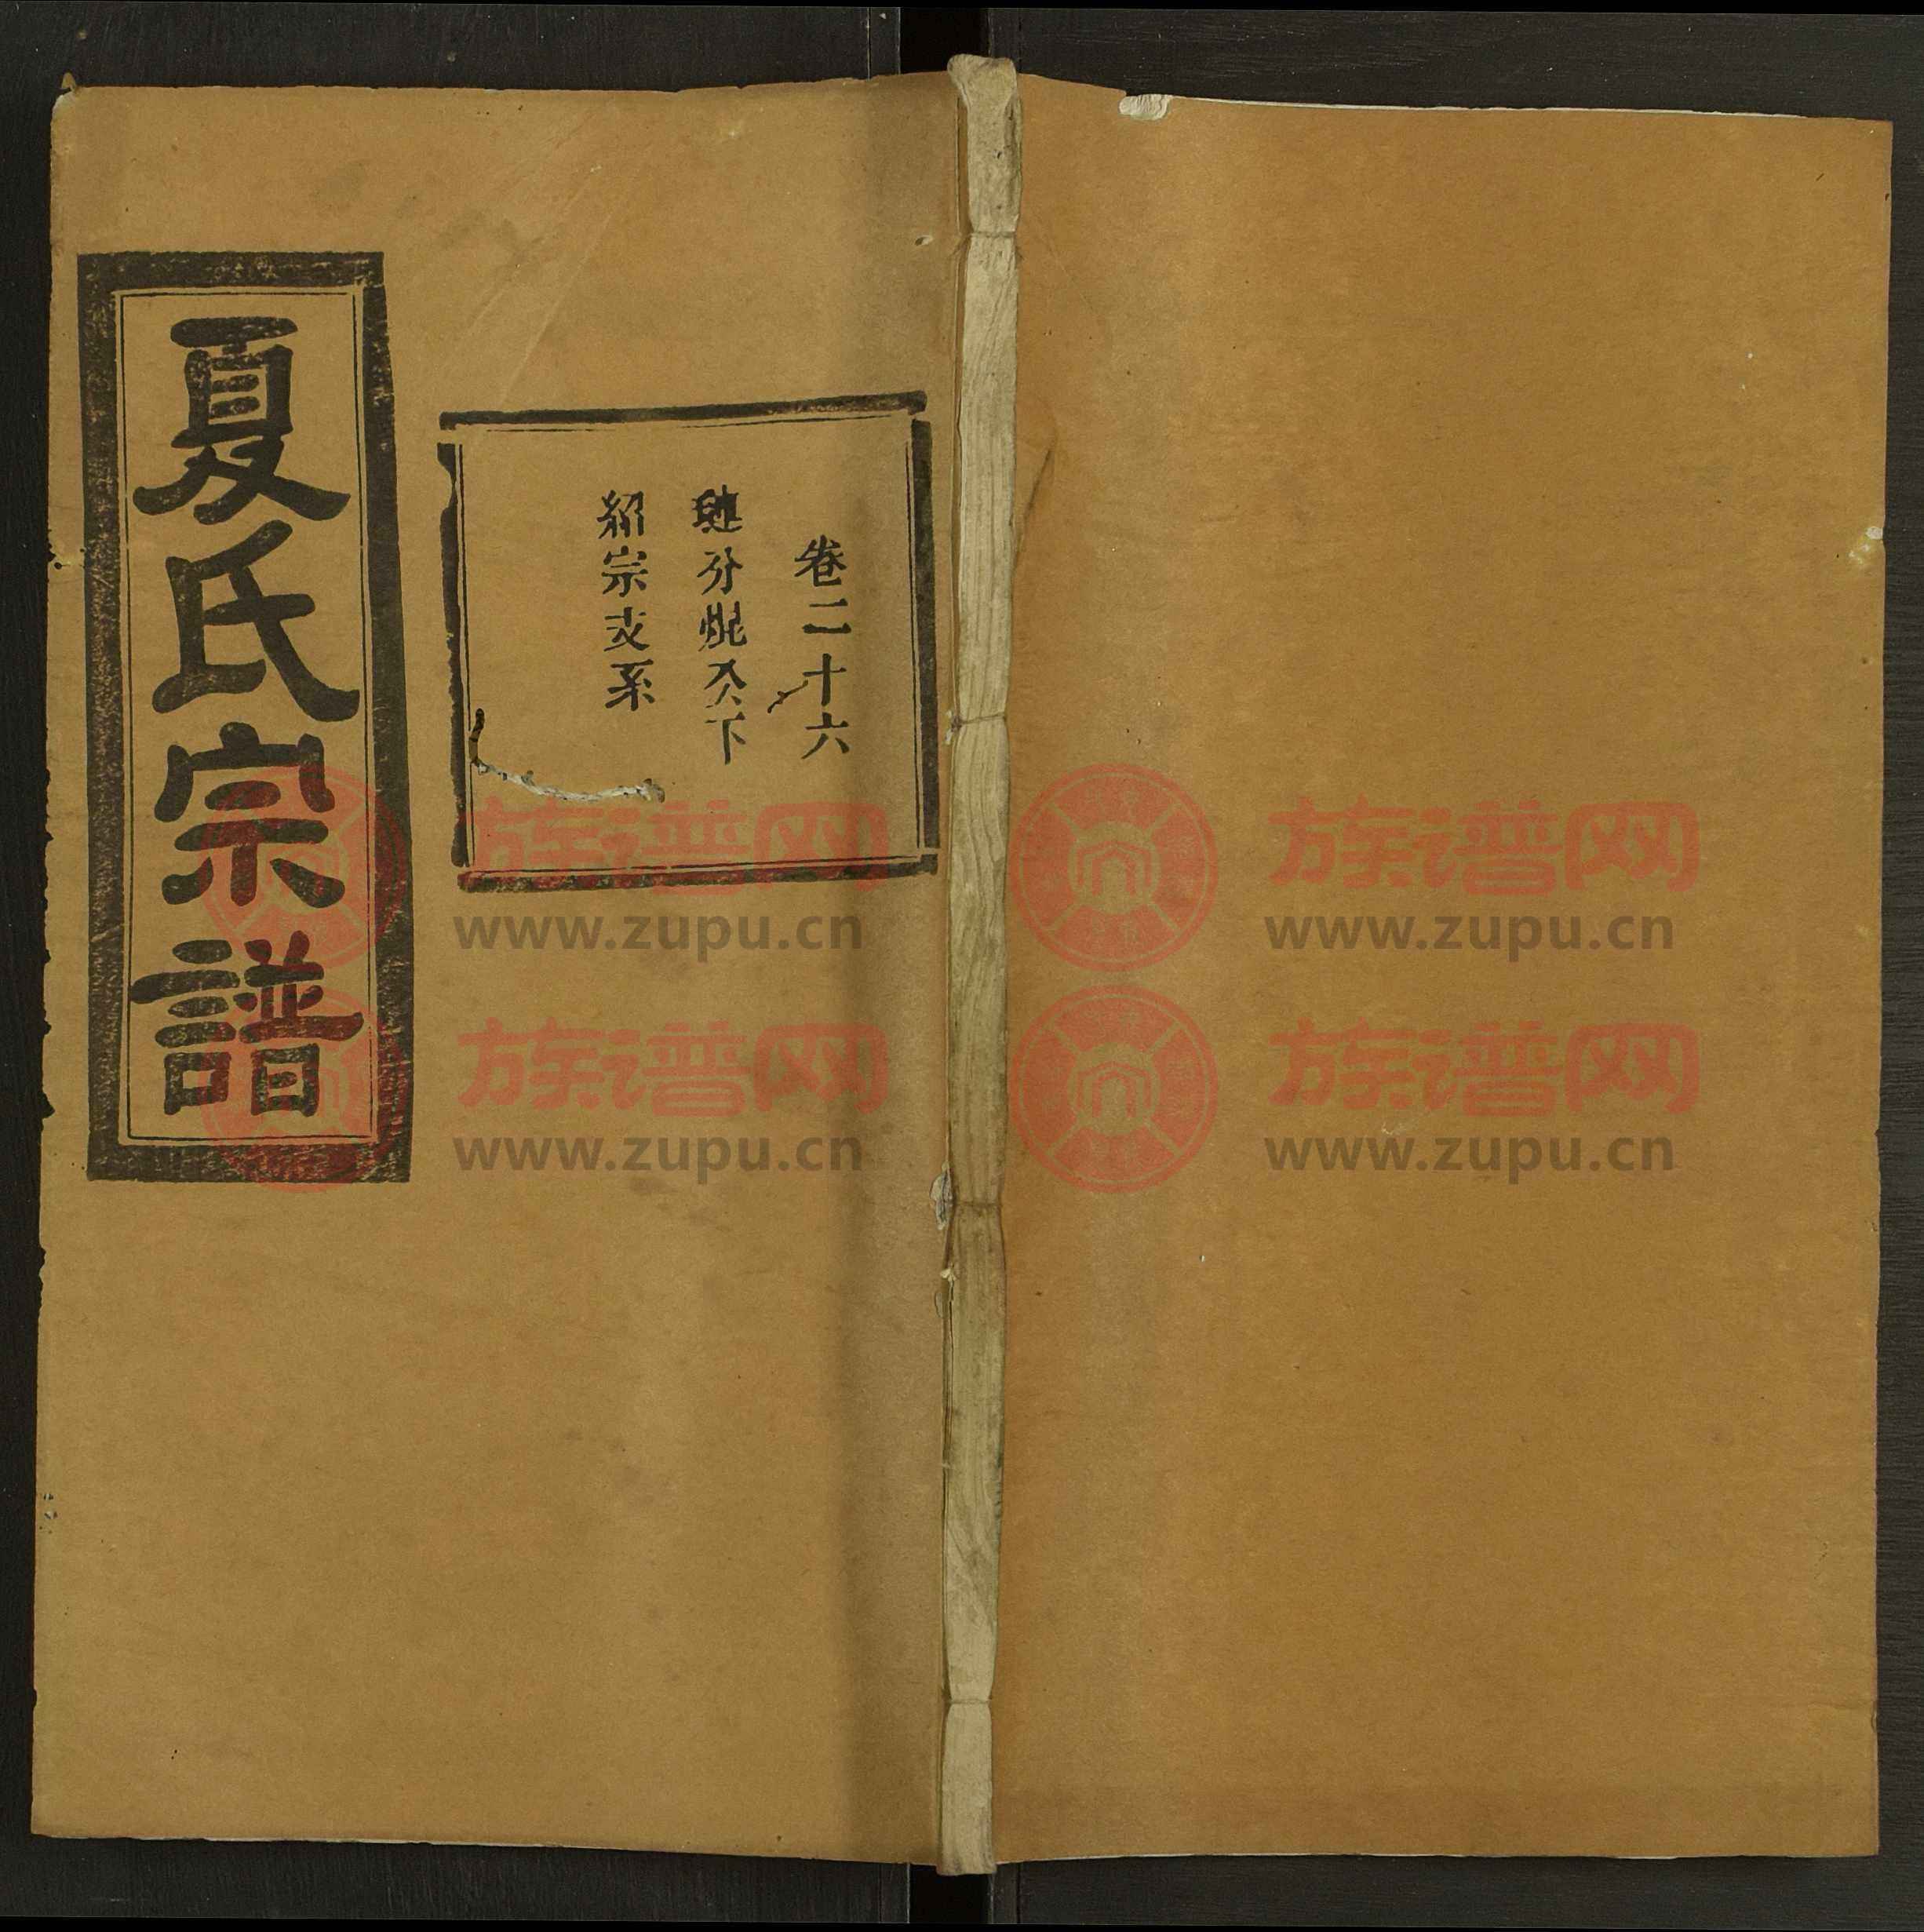 夏氏宗譜
卷二十六
璉分焜公下
紹宗支系
族谱网
www.zupu.cn
族谱网
www.zupu.cn
族谱网
www.zupu.cn
族谱网
www.zupu.cn